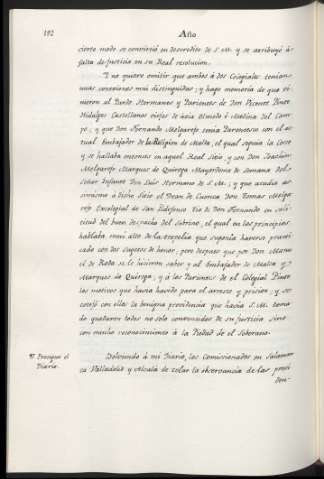 182
Año
cierto modo se convirtió en descredito de S. M. y se atribuyó á
falta de Justicia en su Real resolucion.
no quiero omitir que ambos á dos Colegiales tenian
unas conexiones mui distinguidas; y hago memoria de que vi-
nieron al Pardo Hermanos y Parientes de Don Vicente Pinto
Hidalgos Castellanos viejos de ácia Olmedo ó Medina del Cam-
po; y que Don Fernando Melgarejo tenia Parentesco con el ac-
tual Embajador de la Religion de Malta, el qual seguia la Corte
y se hallaba entonces en aquel Real Sitio, y con Don Joachin
Melgarejo Marques de Quiroga Mayordomo de Semana del
Señor Infante Don Luis Hermano de S. M.; y que acudió
á dicho Sitio el Dean de Cuenca Don Tomas Melga-
rejo Excolegial de San Ildefonso tio de Don Fernando en soli-
citud del buen despacho del Sobrino, el qual en los principios
hablaba mui alto de la tropelia que suponia haverse practi-
cado con dos Sugetos de honor, pero despues que por Don Manu-
el de Roda se le hicieron saber y al Embajador de Malta y
Marques de Quiroga, y á los Parientes de el Colegial Pinto
los motivos que havia havido para el arresto y prision, y se
con ellos la benigna providencia que havia S. M. toma-
do quedaron todos no solo convencidos de su Justicia sino
con mucho reconocimiento á la Piedad de el Soberano.
Prosigue el
Diario.
Bolviendo á mi Diario, los Comisionados en Salaman-
ca Valladolid y Alcalá de zelar la observancia de las provi-
den-